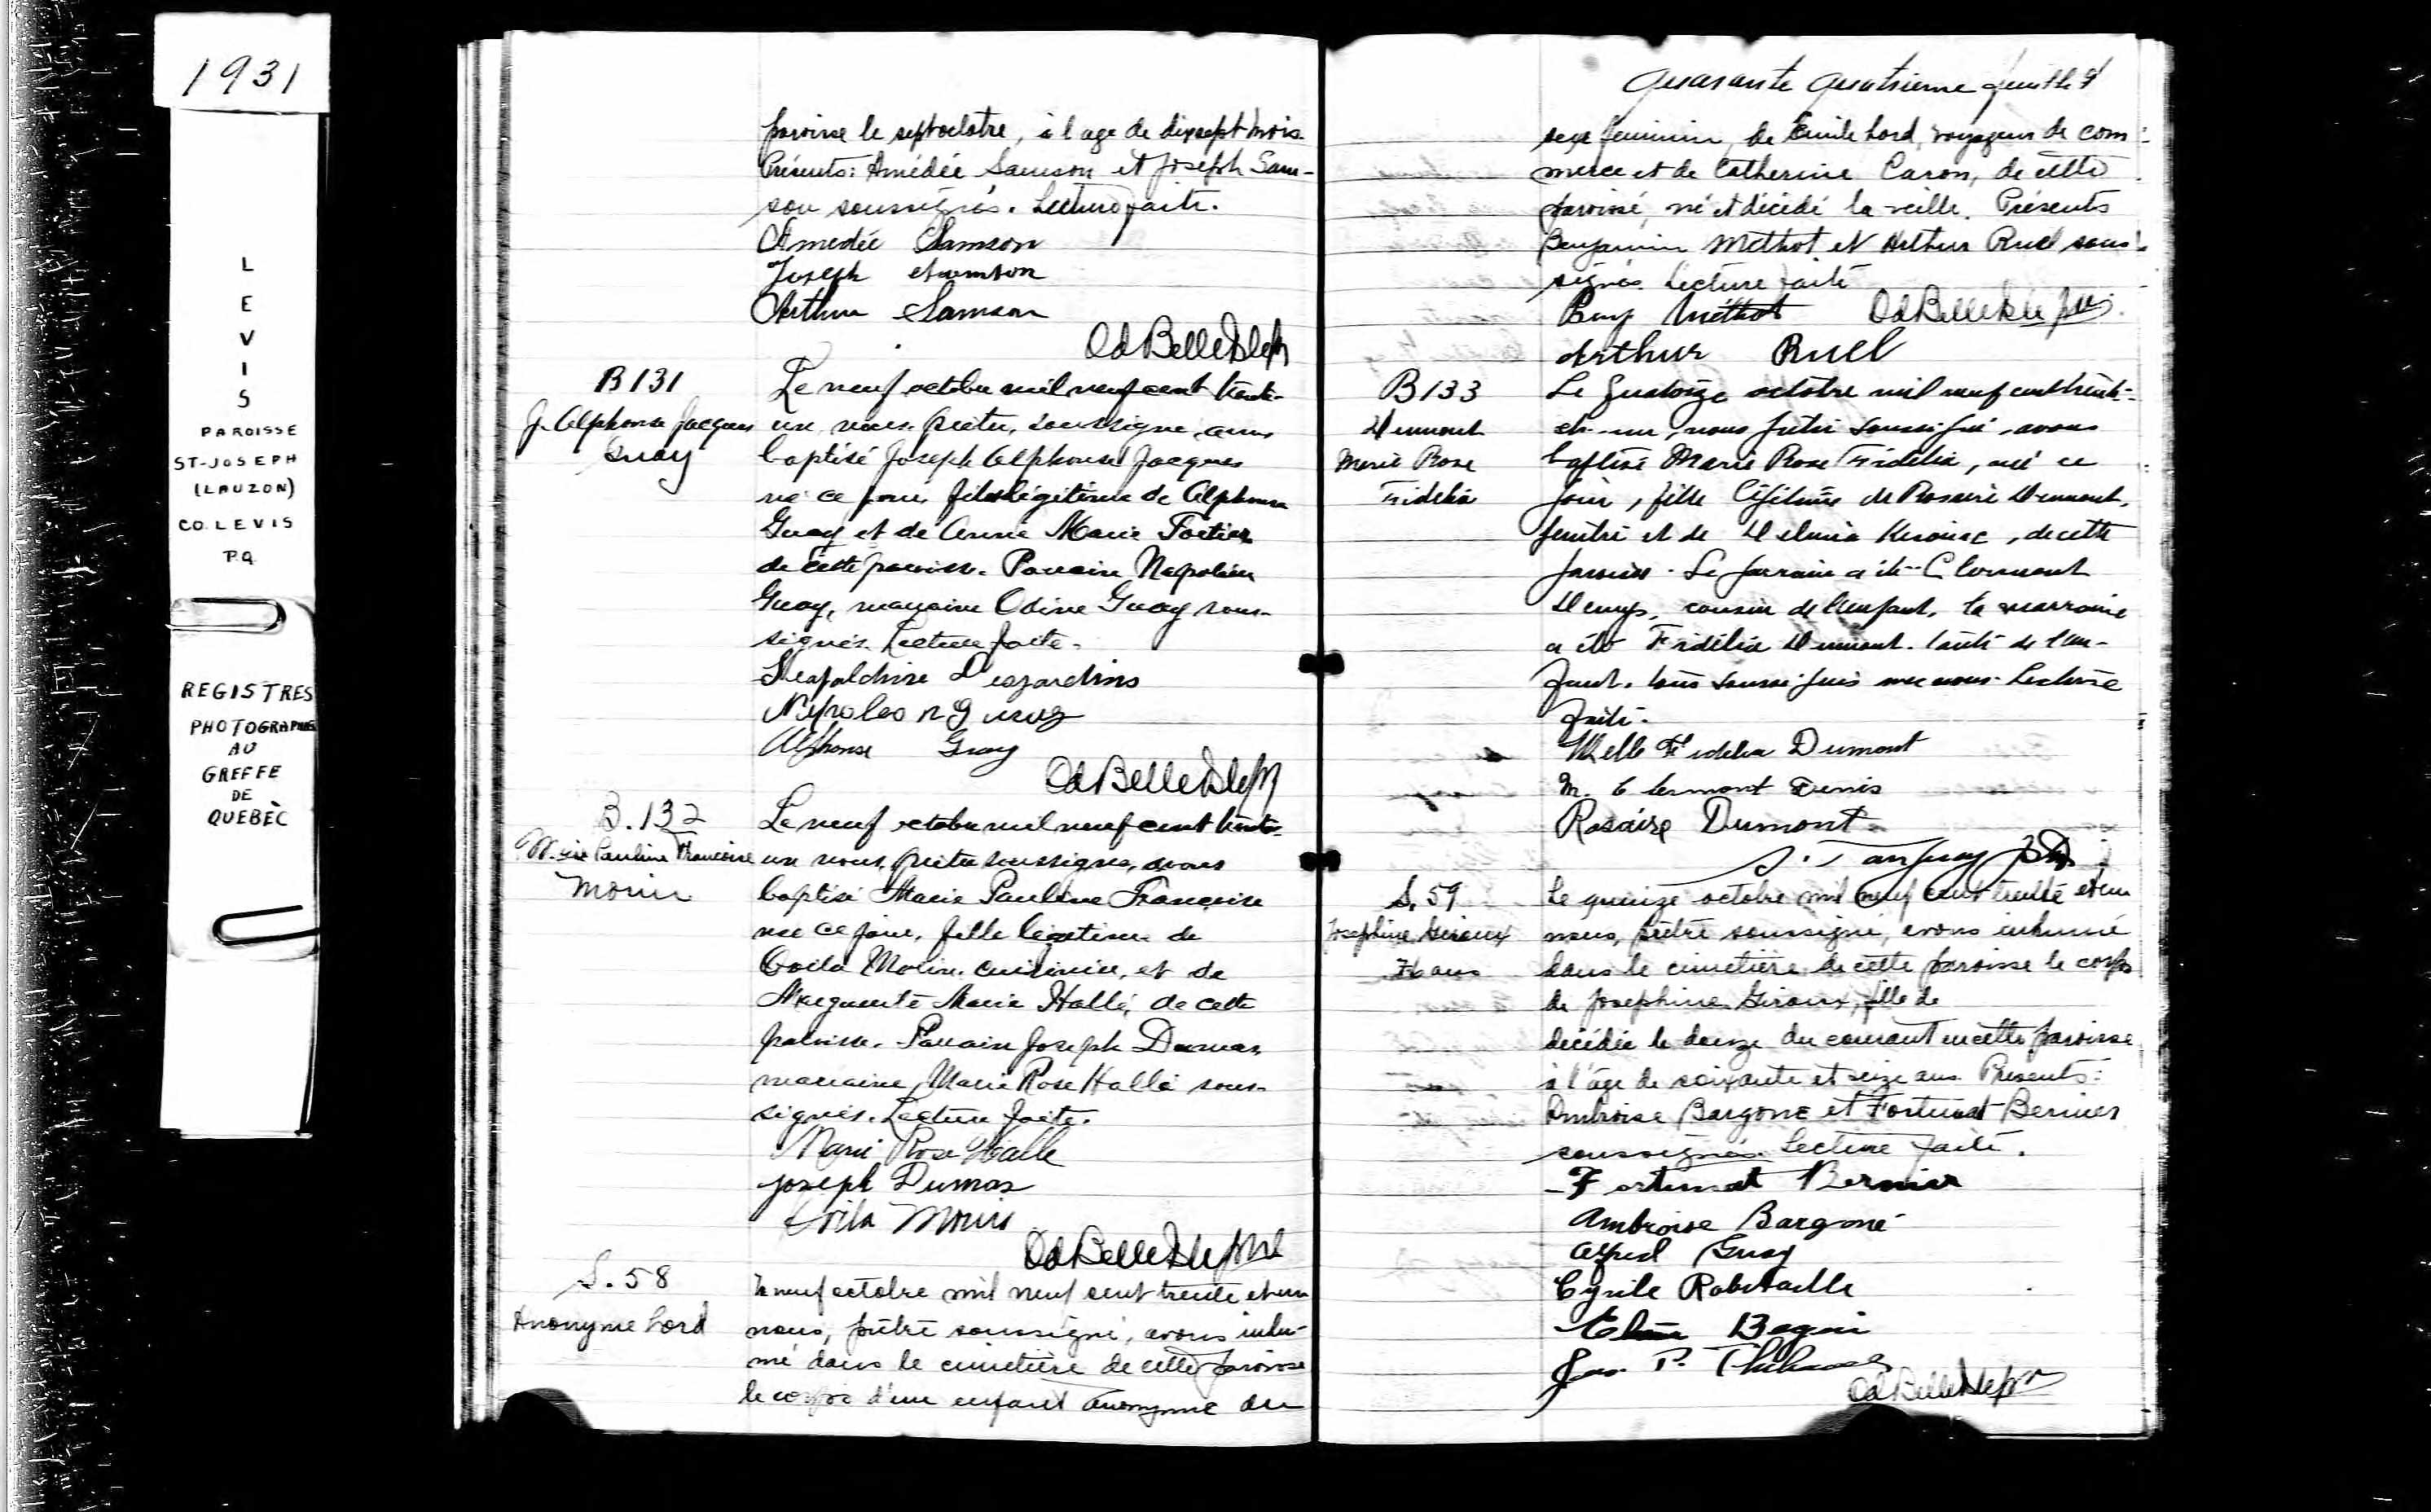 1931
LEVIS
PAROISSE
ST-JOSEPH
(LAUZON)
CO. LEVIS
P.Q
REGISTRES
PHOTOGRAPHIÉS
AU
GREFFE
DE
QUEBÈC
paroisse le sept octobre, à l'age de dix sept mois.
Présents: Amédée Samson et Joseph Sam-
son soussignés. Lecture faite.
Amedée Samson
Joseph Samson
Arthur Samson
Od BelleIsle ptr
B 131
J. Alphonse Jacques
Guay
Le neuf octobre mil neuf cent trente-
un nous prêtre, soussigné, avons
baptisé Joseph Alphonse Jacques
né ce jour, fils légitime de Alphonse
Guay et de Anne Marie Fortier
de cette paroisse. Parrain Napoléon
Guay, marraine Guay sous-
signés. Lecture faite.
Desjardins
Napoleon Guay
Alphonse Guay
Od BelleIsle ptr
B. 132
Marie Pauline Francoise
Morin
Le neuf octobre mil neuf cent trente-
un nous, prêtre soussigné, avons
baptisé Marie Pauline Françoise
née ce jour, fille légitime de
Morin, cuisinier, et de
Marguerite Marie Hallé, de cette
paroisse. Parrain Joseph Dumas,
marraine, Marie Rose Hallé sous-
signés. Lecture faite.
Marie Rose Halle
Joseph Dumas
Morin
Od BelleIsle ptre
S. 58
Anonyme Lord
Le neuf octobre mil neuf cent trente et un
nous, prêtre soussigné, avons inhu-
mé dans le cimetière de cette paroisse
le corps d'un enfant anonyme du
Quarante quatrieme feuillet
sexe feminin, de Emile Lord, voyageur de com-
merce et de Catherine Caron, de cette
paroisse, né et décédé la veille. Présents
Benjamin Méthot et Arthur Ruel sous-
signés Lecture faite
Benj Méthot Od BelleIsle ptr
Arthur Ruel
B 133
Dumont
Marie Rose
Fidelia
Le quatorze octobre mil neuf cent trente-
et-un, nous prêtre soussigné, avons
baptisé Marie Rose Fidélia, née ce
jour, fille légitime de Rosaire Dumont,
peintre et de Delvina Kerouac, de cette
paroisse. Le parrain a été Clermont
Denys, cousin de l'enfant, la marraine
a été Fidélia Dumont, tante de l'en-
fant, tous soussignés avec nous. Lecture
faite.
Melle Fidelia Dumont
M. Clermont Denis
Rosaire Dumont
Tanguay ptre
S. 59
Josephine Giroux
76 ans
Le quinze octobre mil neuf cent trente et un
nous, prêtre soussigné, avons inhumé
dans le cimetière de cette paroisse le corps
de Josephine Giroux, fille de
décédée le douze du courant en cette paroisse
à l'âge de soixante et seize ans. Présents:
Ambroise Bargone et Fortunat Bernier
soussignés. Lecture faite.
Fortunat Bernier
Ambroise Bargoné
Alfred Guay
Cyrile Robitaille
Begin
P.
Od BelleIsle ptr